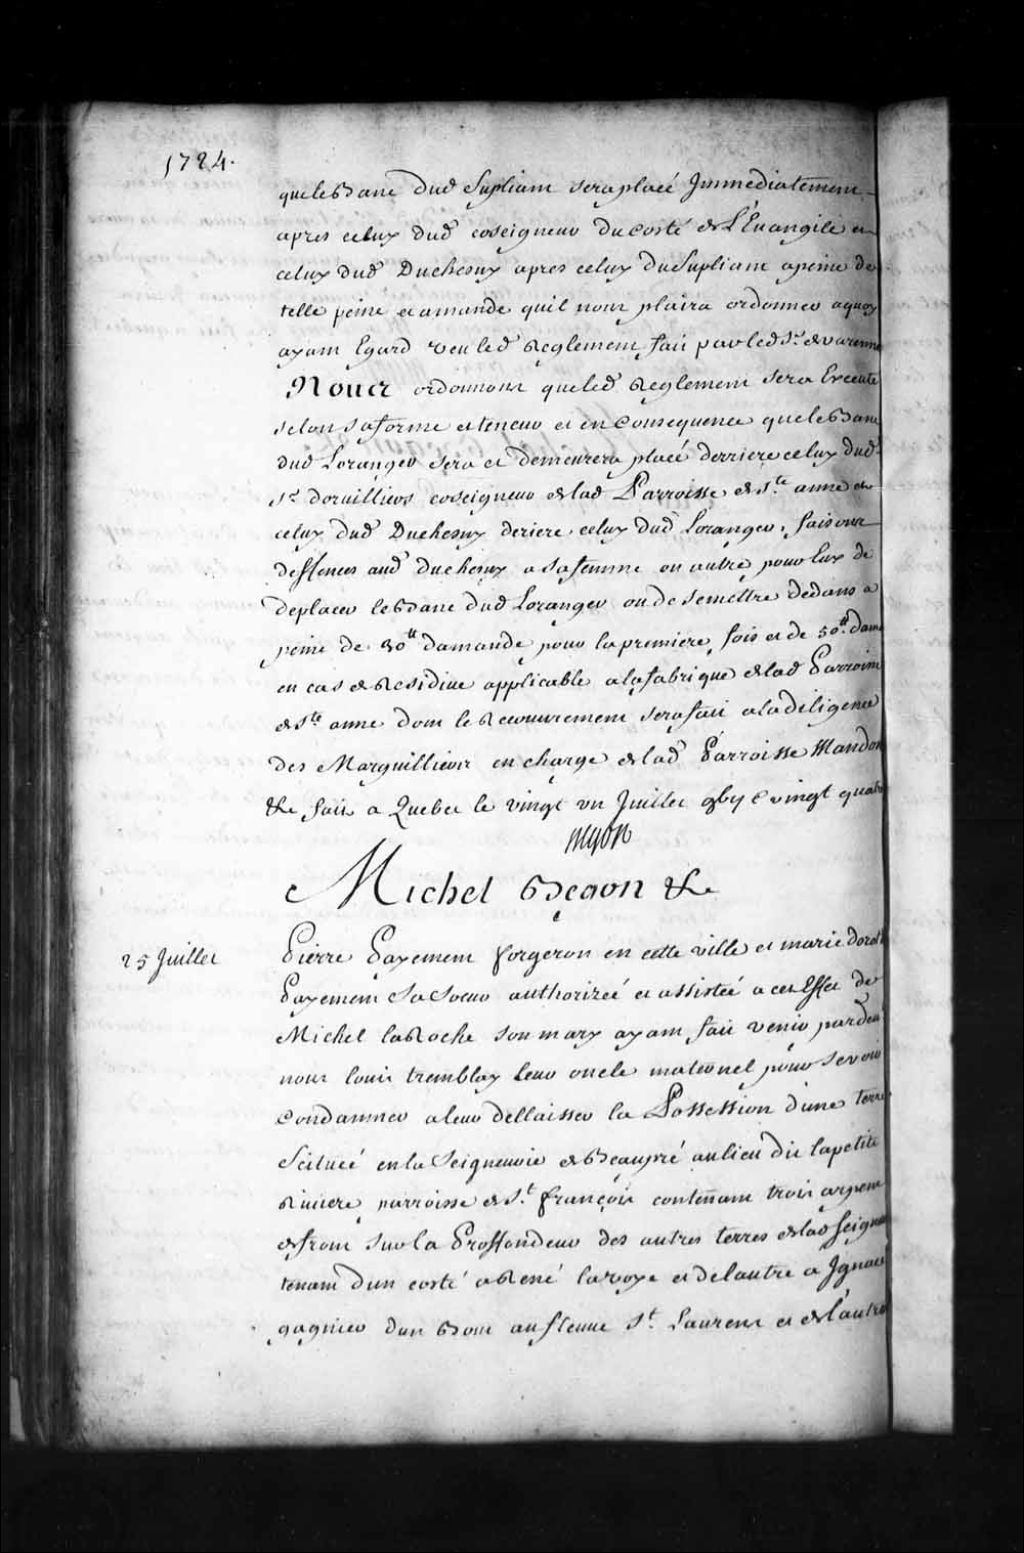 1724.
que le Banc dud Supliant sera placé Jmmediatement
apres celuy dud coseigneur du costé de L'Euangile et
celuy dud Duchesny apres celuy du Supliant a peine de
telle peine et amande quil nous plaira ordonner a quoy
ayant Egard veu led Reglement fait par led Sr. de varenne
Nous ordonnons que led Reglement sera Execute
selon sa forme et teneur et en Consequence que le Banc
dud Loranger sera et demeurera placé derriere celuy dud
Sr. dorvilliers coseigneur de lad Parroisse de Ste. anne et
celuy dud Duchesny deriere celuy dud Loranger, faisons
deffences aud Duchesny a sa femme ou autre pour Luy de
deplacer le Banc dud Loranger ou de se mettre dedans a
peine de 30tt damande pour la premiere fois et de 50tt. dam
en cas de Residiue applicable a la fabrique de lad Parroisse
de Ste. anne dont le Recouurement sera fait a la diligence
des Marguilliers en charge de lad Parroisse Mandon
&c fait a Quebec le vingt un Juillet gbij C vingt quatre
Michel Begon &c
25 Juillet
Pierre Payement forgeron en cette ville et marie dorot
Payement Sa Soeur authorizeé et assisteé a cet Effet de
Michel LaRoche son mary ayant fait venir pardeu
nous Louis tremblay Leur oncle maternel pour se voir
Condamner a leur dellaisser la Possession d'une terre
Scitueé en la Seigneurie de Beaupré au lieu dit la petite
Riuiere parroisse de St. françois contenant trois arpens
de front sur la Proffondeur des autres terres de lad Seigneu
tenant dun costé a René Lavoye et de lautre a Jgnace
gagnier dun Bout au fleuue St. Laurens et de L'autre